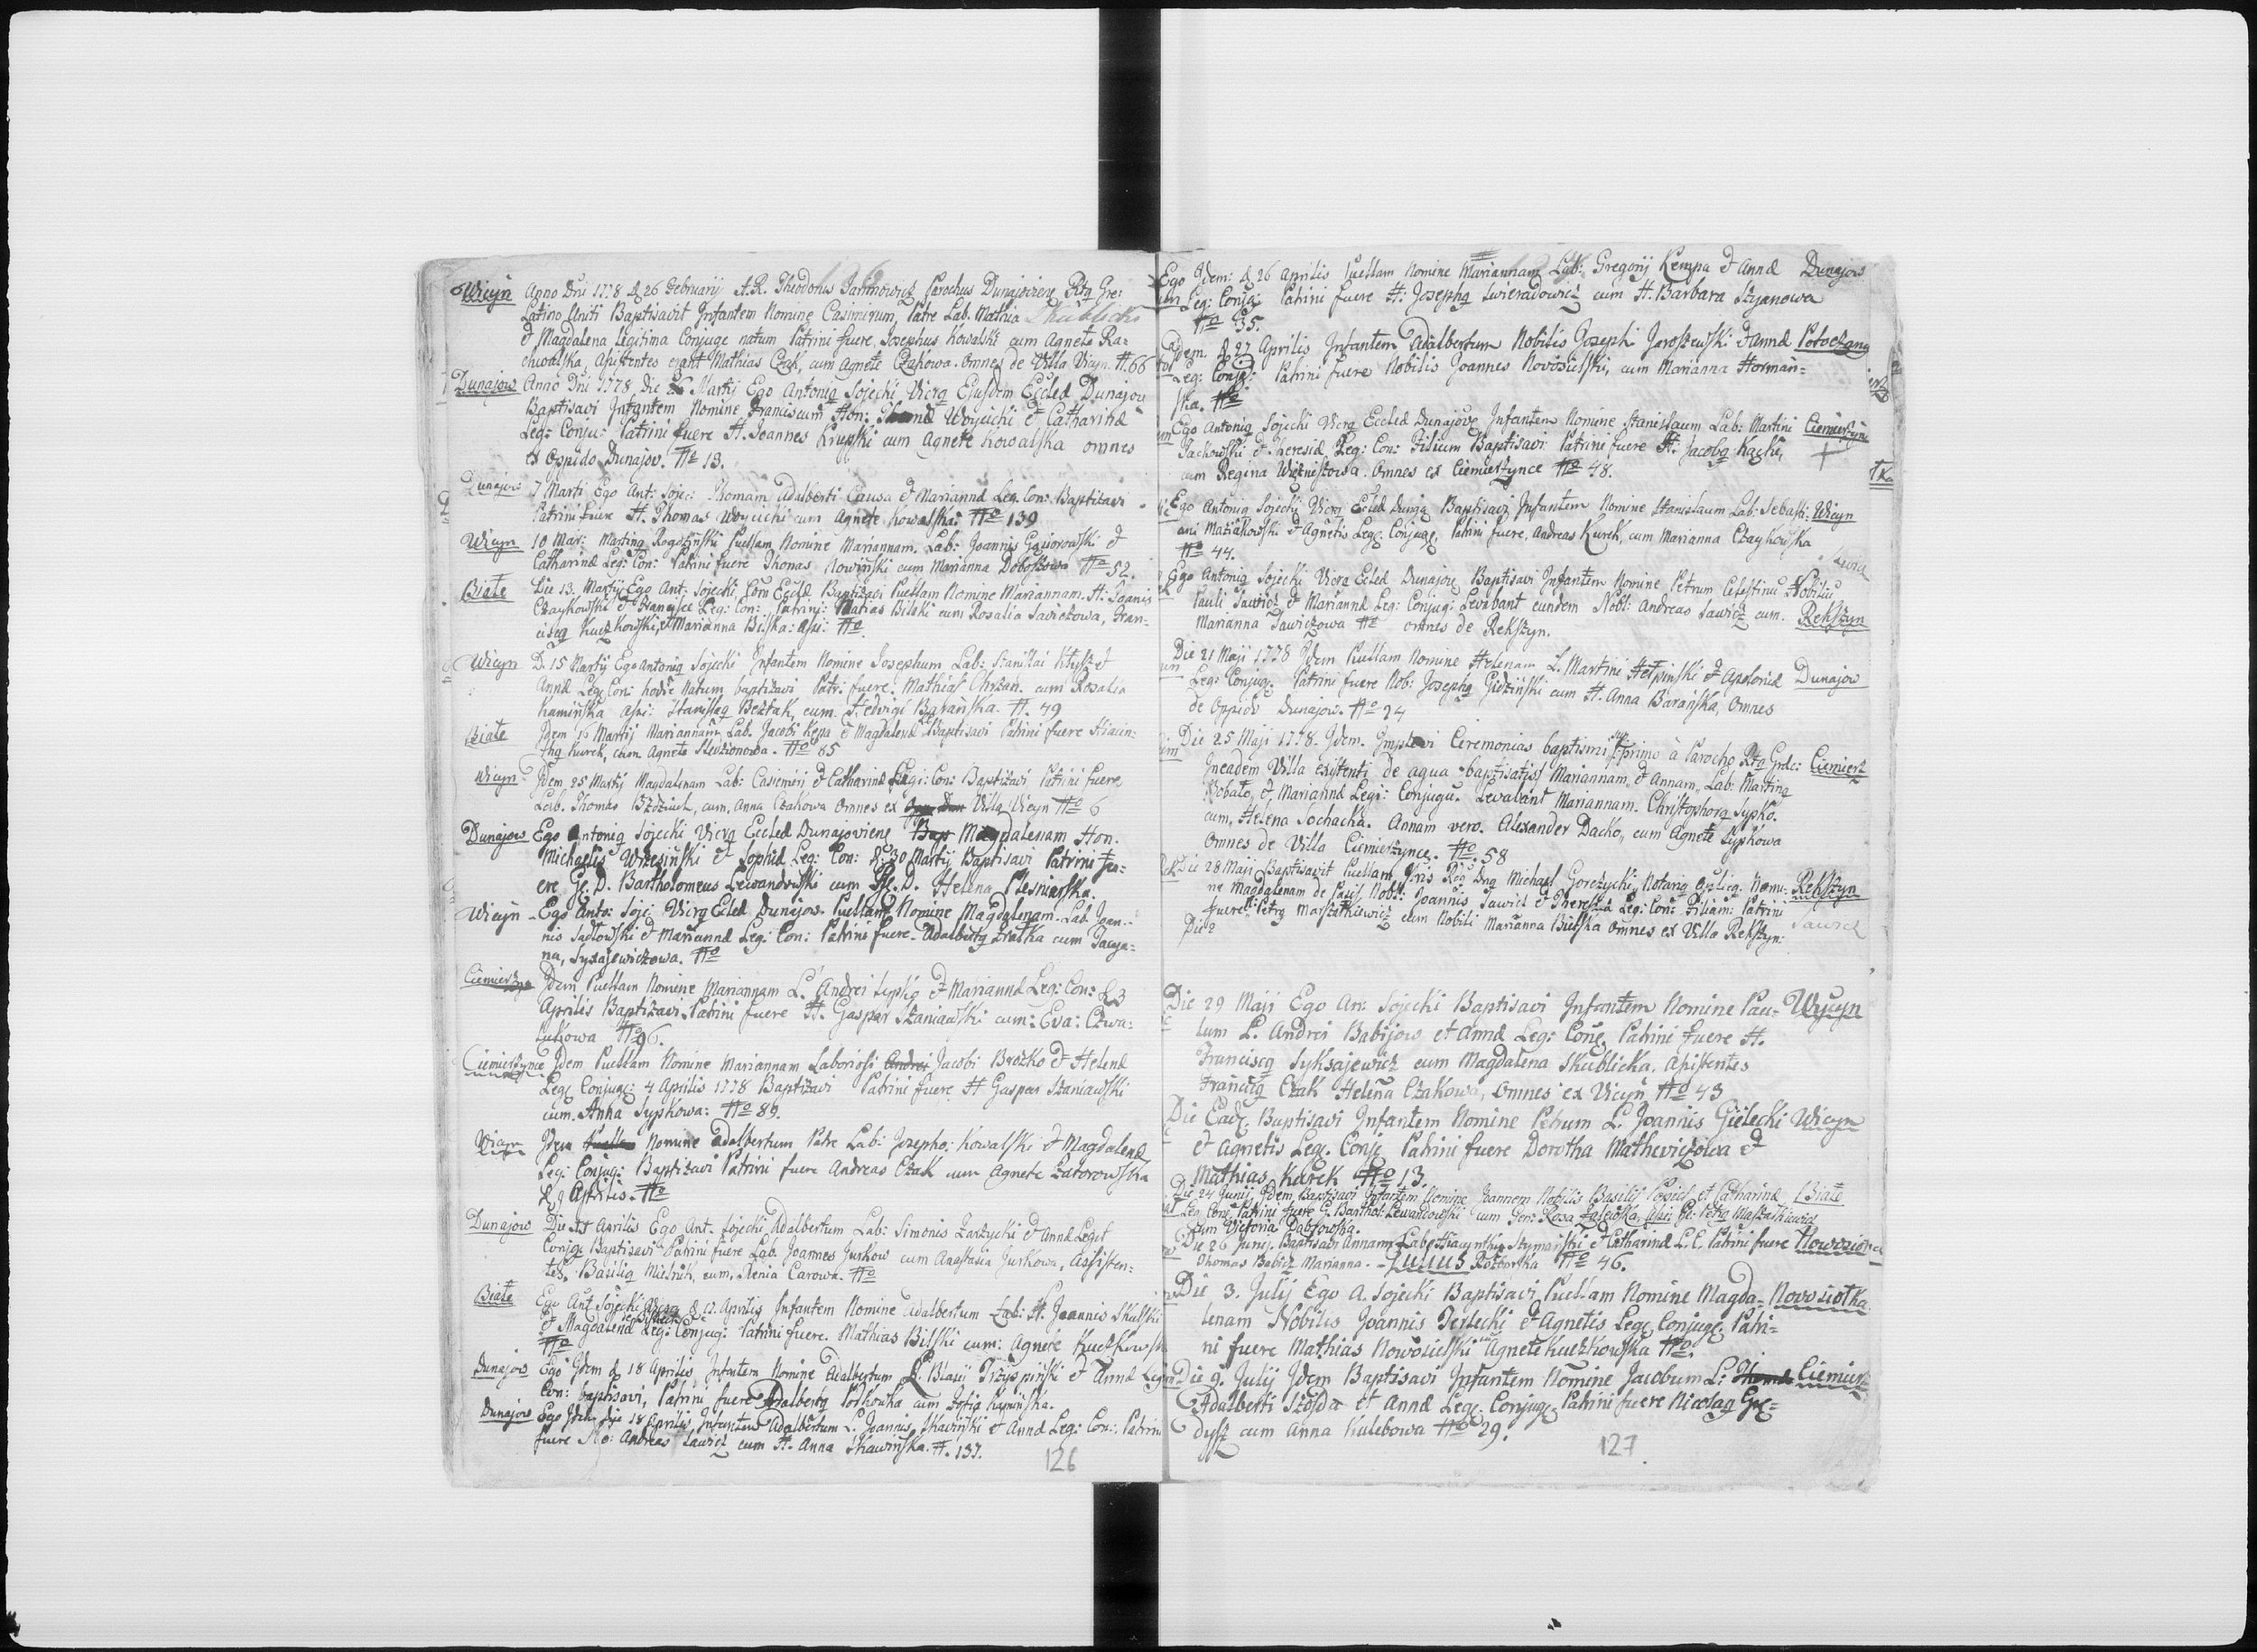 Wicyn Anno Dni 1778 d 26 Februarij A.R. Theodorus Parochus Dunajoviens Ritq Gre:
Latino Uniti Baptisavit Infantem Nomine Casimirum, Patre Lab. Mathia Skublicki
et Magdalena Legitima Conjuge natum Patrini fuere, Josephus Kowalski cum Agnete Ra=
chwalska, Assistentes erant Mathias Czak, cum Agnete Czakowa. Omnes de Villa Vicyn. H. 66
Dunajow Anno Dni 1778 die Martij Ego Antoniq Sojecki Vicrq Ejusdem Eccleae Dunajov
Baptisavi Infantem Nomine Franciscum Hon: Woycicki et Catharinae
Leg: Conju: Patrini fuere H. Joannes Krupski cum Agnete Kowalska omnes
ex Oppido Dunajov. No 13.
Dunajow 7 Marti Ego Ant: Sojec: Thomam Adalberti Causa et Mariannae Leg. Con: Baptizavi
Patrini fuere H. Thomas Woycicki cum Agnete Kowalska: No 139
Wicyn 10 Mar: Martinq Rogozinski Puellam Nomine Mariannam. Lab: Joannis Gąsiorowski et
Catharinae Leg: Con: Patrini fuere Thomas Nowinski cum Marianna Doboszowa No 52.
Białe Die 13. Martij Ego Ant: Sojecki, Com Eccld Baptizavi Puellam Nomine Mariannam. H: Joanis
Czaykowski et Franciscae Leg: Con: Patrinj: Matias Bilski cum Rosalia Saviczowa, Fran=
ciscq Kuczkowski, et Marianna Bilska: assi: No
Wicyn D. 15 Martij Ego Antoniq Sojecki Infantem Nomine Josephum Lab: Stanislai et
Annae Leg Con: hodie Natum baptizavi Patri: fuere. Mathias Chrzan. cum Rosalia
Kaminska assi: Stanislaq Beztak, cum. Hedvigi Baranska. H. 49
Białe Idem 16 Martij Mariannam, Lab. Jacobi Kępa et Magdalenae Baptisavi Patrini fuere Hiacin=
thq Kurek, cum Agnete Sledzionowa. No 85
Wicyn Idem 25 Martij Magdalenam Lab: Casimiri et Catharinae Legi: Con: Baptizavi Patrini fuere,
Lab. Thomas Bzdziuch, cum, Anna Czakowa Omnes ex Villa Vicyn No 6
Dunajow Ego Antoniq Sojecki Vicrq Eccled Dunajoviens Bap Magdalenam Hon.
Michaelis Wrzesinski et Sophiae Leg: Con: d: 30 Martij Baptisavi Patrini fu=
ere G. D. Bartholomeus Lewandowski cum G. D. Helena Plesnierska.
Wicyn Ego Anto: Soje: Vicrq Ecled Dunajow. Puellam Nomine Magdalenam. Lab. Joan=
nis Sadlowski et Mariannae Leg: Con: Patrini fuere Adalbertq Fratka cum Tacya=
na, Syxajewiczowa. No
Ciemierzyn Idem Puellam Nomine Mariannam L. Andrei Sypko et Mariannae Leg: Con: d 3
Aprilis Baptizavi. Patrini fuere H. Gaspar Staniawski cum: Eva: Czwa:
No 96.
Ciemierzynce Idem Puellam Nomine Mariannam Laboriosi Andrei Jacobi Brozko et Helenae
Leg Conjug: 4 Aprilis 1778 Baptizavi Patrini fuere H Gaspar Staniawski
cum Anna Sypkowa: No 89.
Wicyn Idem Puellam Nomine Adalbertum Patre Lab: Josepho Kowalski et Magdalenae
Leg: Conjug: Baptizavi Patrini fuere Andreas Czak cum Agnete Zatorowska
d 9 Aprilis. No
Dunajow Die 15 Aprilis Ego Ant. Sojecki, Adalbertum Lab: Simonis Zarzycki et Annae Legit
Conjg Baptisavi Patrini fuere Lab. Joannes Jurkow cum Anastasia Jurkowa, Assisten=
tes, Basiliq Mielnik, cum, Xenia Carowa. No
Białe Ego Ant Sojecki Vicrq d 17. Aprilis Infantem Nomine Adalbertum Lab: H. Joannis Skulski
et Magdalenae Leg: Conjug: Patrini fuere. Mathias Bilski cum: Agnete Kuczkowsk
No
Dunajow Ego Idem d 18 Aprilis Infantem Nomine Adalbertum L. Blasij Trzyspinski et Annae Legi
Con: baptisavi, Patrini fuere Adalbertq cum Zofia Kaminska.
Dunajow Ego Idem die 18 Aprilis, Infantem Adalbertum L. Joannis Skawinski et Annae Leg: Con: Patrin
fuere No: Andreas Sawicz cum H. Anna Skawinska. H. 137.
126
Ego Idem: d 26 Aprilis Puellam Nomine Mariannam, Lab: Gregorij Kempa et Annae Dunajow
Leg: Conjg: Patrini fuere H. Josephq Swieradowicz cum H. Barbara Szyanowa
No 35.
Idem. d 27 Aprilis Infantem Adalbertum Nobilis Joseph Jaroszewski et Annae Potoczany
Leg: Conjg: Patrini fuere Nobilis Joannes Novosielski, cum Marianna Horman=
ska. No
Ego Antoniq Sojecki Vicrq Eccled Dunajov Infantem Nomine Stanislaum Lab: Martini Ciemierzyn
Jackowski et Theresiae Leg: Con: Filium Baptisavi Patrini fuere H. Jacobq Kącki,
cum Regina Wiznistowa. Omnes ex Ciemierzynce No 48.
Ego Antoniq Sojecki Vicrq Ecled Dunajq Baptisavi Infantem Nomine Stanislaum Lab: Sebasti: Wicyn
ani Maziakowski et Agnetis Leg. Conjuge. Patrini fuere, Andreas Kurek, cum Marianna Czaykowska
No 44.
Sawicz
Ego Antoniq Sojecki Vicrq Ecled Dunajov Baptisavi Infantem Nomine Petrum Celestinu Nobiliu
Pauli Sawicz et Mariannae Leg: Conjug: Levabant eundem Nobl: Andreas Sawicz cum. Rekszyn
Marianna Sawiczowa No omnes de Rekszyn.
Die 21 Maji 1778 Idem Puellam Nomine Helenam L. Martini Helpinski et Apoloniae Dunajow
Leg: Conjug. Patrini fuere Nob: Josephq Gidzinski cum H. Anna Baranska, Omnes
de Oppido Dunajow. No 24
Die 25 Maji 1778. Idem. Implevi Ceremonias baptismi primo à Parocho Rtq Grec: Ciemierz
Ineadem Villa existenti de aqua baptisatis Mariannam et Annam, Lab: Martinq
et Mariannae Legi: Conjugu. Levabant Mariannam. Christophorq Sypko.
cum, Helena Sochacka. Annam vero. Alexander Dacko, cum Agnete Sypkowa
Omnes de Villa Ciemierzynce. No. 58
Die 28 Maji Baptisavit Puellam Dnq Michael Gorczycki, Notariq Nomi: Rekszyn
ne Magdalenam de Nobl: Joannis Sawicz et Theresiae Leg: Con: Filiam: Patrini
fuere Petrq Marszatkiewicz cum Nobili Marianna Bielska Omnes ex Villa Rekszyn: Sawicz
Die
Die 29 Maji Ego An: Sojecki Baptisavi Infantem Nomine Pau= Wycyn
lum L. Andrei Babijow et Annae Leg: Cong. Patrini fuere H.
Franciscq Syksajewicz cum Magdalena Skublicka. Assistentes
Franciq Czak Helena Czakowa, Omnes ex Vicyn, No 43
Die Ead. Baptisavi Infantem Nomine Petrum L. Joannis Gielecki Wicyn
et Agnetis Leg. Conjg Patrini fuere Dorotha Mathewiczowa et
Mathias Kurek No 13.
Die 24 Junij Idem Baptisavi Infantem Nomine Joannem Nobilis Basilij Popiel et Catharinae Białe
Leg Cong Patrini fuere G. Barthol: Lewandowski cum Gen: Rosa Zalewska, assi. Gl. Petrq Maszatkiewicz
cum Victoria Dabrowska.
Die 26 Junij. Baptisavi Annam Lab: Hiacynthi Szymanski et Catharinae L. C. Patrini fuere Nowosiołka
Thomas Babicz Marianna - Julius Rozborska No 46.
Die 3. Julij Ego A. Sojecki Baptisavi, Puellam Nomine Magda= Nowosiołka
lenam Nobilis Joannis Terlecki et Agnetis Leg. Conjuge. Patri=
ni fuere Mathias Nowosielski cu Agnete Kuczkowska No.
Die 9. Julij Idem Baptisavi Infantem Nomine Jacobum L: Ciemierz
Adalberti Szozda et Annae Leg. Conjug. Patrini fuere Nicolaq Grę=
dysz cum Anna Kulebowa No 29.
127